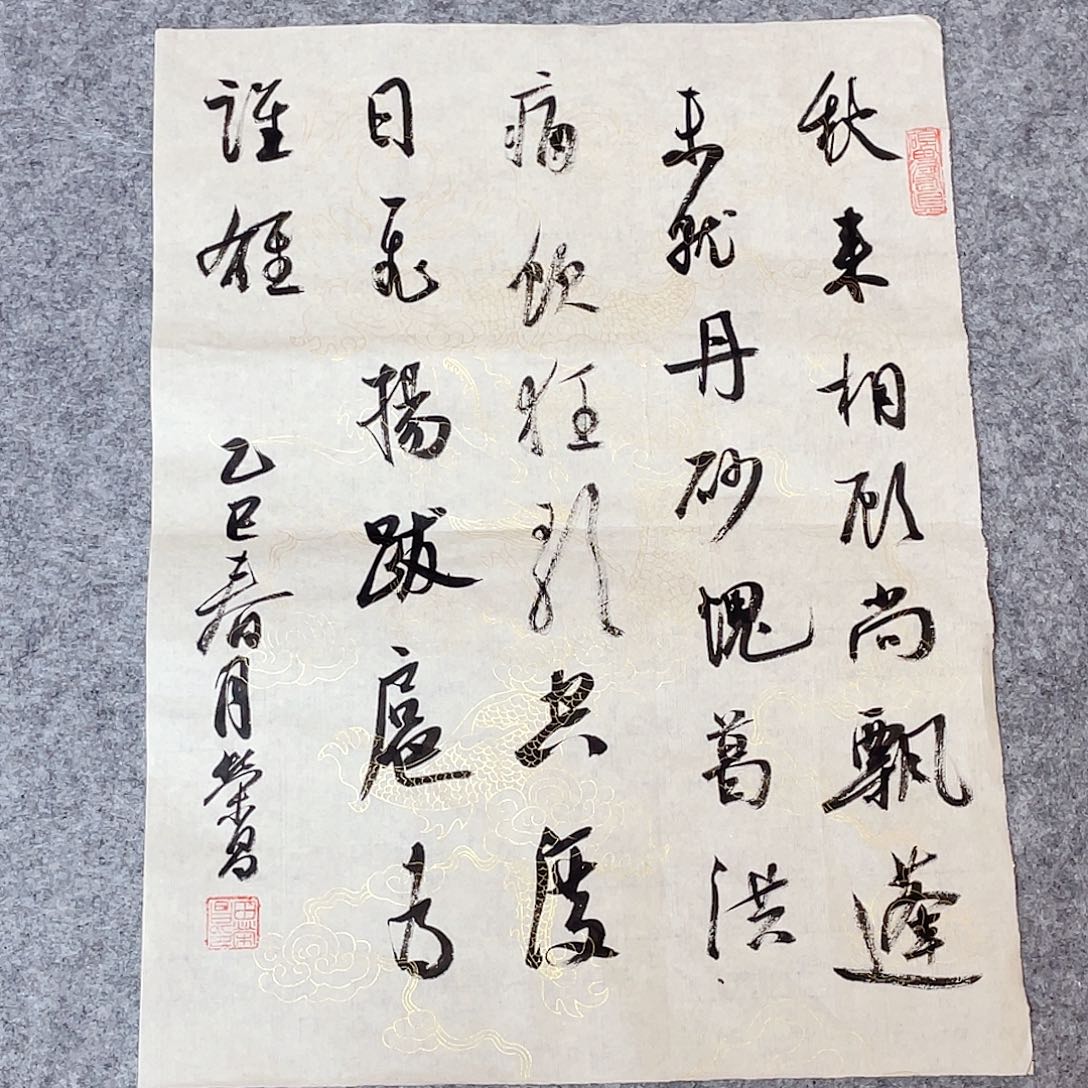 秋来相顾尚飘蓬
未就丹砂愧葛洪
痛饮狂歌空度
日飞揚跋扈为
誰雄
乙巳春月榮昌